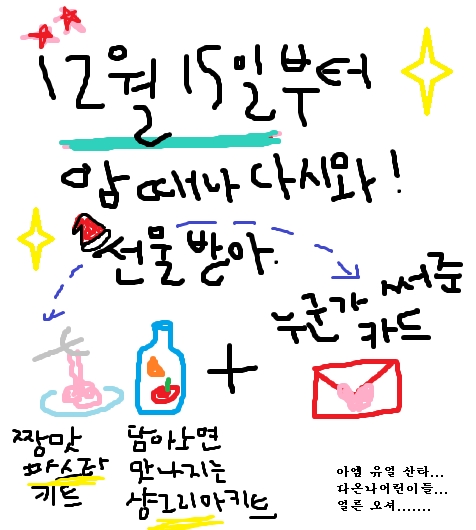 12월 15일부터
암때나 다시와!
선물 받아.
누군가 써준
카드
짱맛
파스타
키트
담아노면
맛나지는
샹그리아키트
아엠 유얼 산타...
다온나어린이들...
얼른 오셔.......